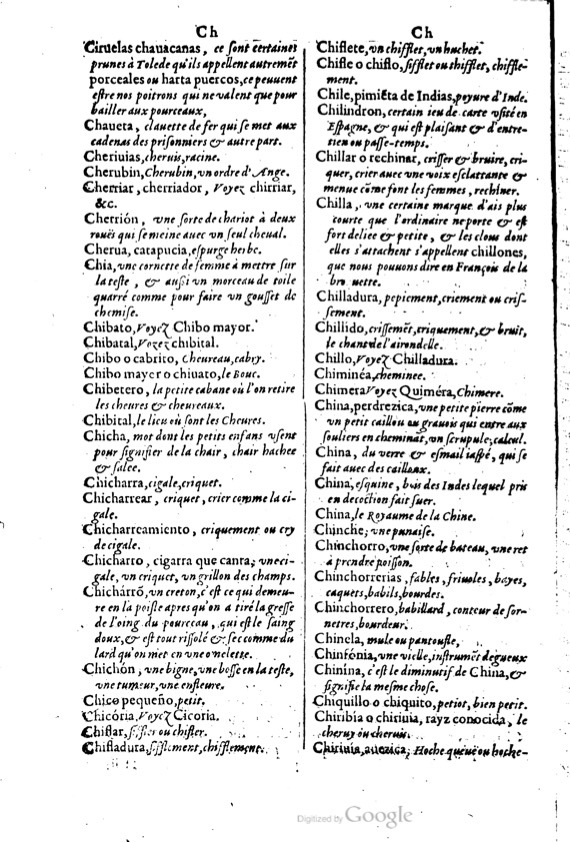 Ch
Ciruelas chauacanas, ce sont certaines
prunes à Tolede qu'ils appellent autremẽt
porceales ou harta puercos, ce peuuent
estre nos poitrons qui ne valent que pour
bailler aux pourceaux,
Chaueta, clauette de fer qui se met aux
cadenas des prisonniers & autre part.
Cheriuias, cheruis, racine.
Cherubin, Cherubin, vn ordre d'Ange.
Cherriar, cherriador, Voyez chirriar,
&c.
Cherrión, vne sorte de chariot à deux
rouës qui se meine auec vn seul cheual.
Cherua, catapucia, espurge herbe.
Chia, vne cornette de femme à mettre sur
la teste, & aussi vn morceau de toile
quarré comme pour faire vn gousset de
chemise.
Chibato, Voyez Chibo mayor.
Chibatal, Voyez chibital.
Chibo o cabrito, Cheureau, cabry.
Chibo mayer o chiuato, le Bouc.
Chibetero, la petite cabane où l'on retire
les cheures & cheureaux.
Chibital, le lieu où sont les Cheures.
Chicha, mot dont les petits enfans vsent
pour signifier de la chair, chair hachee
& salee.
Chicharra, cigale, criquet.
Chicharrear, criquet, crier comme la ci-
gale.
Chicharreamiento, criquement ou cry
de cigale.
Chicharro, cigarra que canta; vne ci-
gale, vn criquet, vn grillon des champs.
Chichárrõ, vn creton, c'est ce qui demeu-
re en la poisle apres qu'on a tiré la gresse
de l'oing du pourceau, qui est le saing
doux, & est tout rissolé & sec comme du
lard qu'on met en vne omelette.
Chichón, vne bigne, vne bosse en la teste,
vne tumeur, vne enfleure.
Chico pequeño, petit.
Chicória, Voyez Cicoria.
Chiflar, siffler ou chifler.
Chifladura, sifflement, chifflement.
Ch
Chiflete, vn chifflet, vn huchet.
Chifle o chiflo, sifflet ou chifflet, chiffle-
ment.
Chile, pimiẽta de Indias, poyure d'Inde.
Chilindron, certain ieu de carte vsité en
Espagne, & qui est plaisant & d'entre-
tien ou passe-temps.
Chillar o rechinar, crisser & bruire, cri-
quer, crier auec vne voix esclattante &
menue cõme font les femmes, rechiner.
Chilla, vne certaine marque d'ais plus
courte que l'ordinaire ne porte & est
fort deliee & petite, & les clous dont
elles s'attachent s'appellent chillones,
que nous pouuons dire en François de la
brouette.
Chilladura, pepiement, criement ou cris-
sement.
Chillido, crissemẽt, criquement, & bruit,
le chant de l'airondelle.
Chillo, Voyez Chilladura.
Chiminéa, cheminee.
Chimera Voyez Quiméra, Chimere.
China, perdrezica, vne petite pierre cõme
vn petit caillou ou grauois qui entre aux
souliers en cheminãt, vn scrupule, calcul.
China, du verre & esmail iaspé, qui se
fait auec des cailloux.
China, esquine, bois des Indes lequel pris
en decoction fait suer.
China, le Royaume de la Chine.
Chinche, vne punaise.
Chinchorro, vne sorte de bateau, vne ret
à prendre poisson.
Chinchorrerias, fables, friuoles, bayes,
caquets, babils, bourdes.
Chinchorrero, babillard, conteur de sor-
netres, bourdeur.
Chinela, mule ou pantoufle,
Chinfónia, vne vielle, instrumẽt de gueux
Chinina, c'est le diminutif de China, &
signifie la mesme chose.
Chiquillo o chiquito, petiot, bien petit.
Chiribia o chiriuia, rayz conocida, le
cheruy ou cheruis.
Chiriuia, auezica; Hoche queuë ou hoche-
Digitized by Google